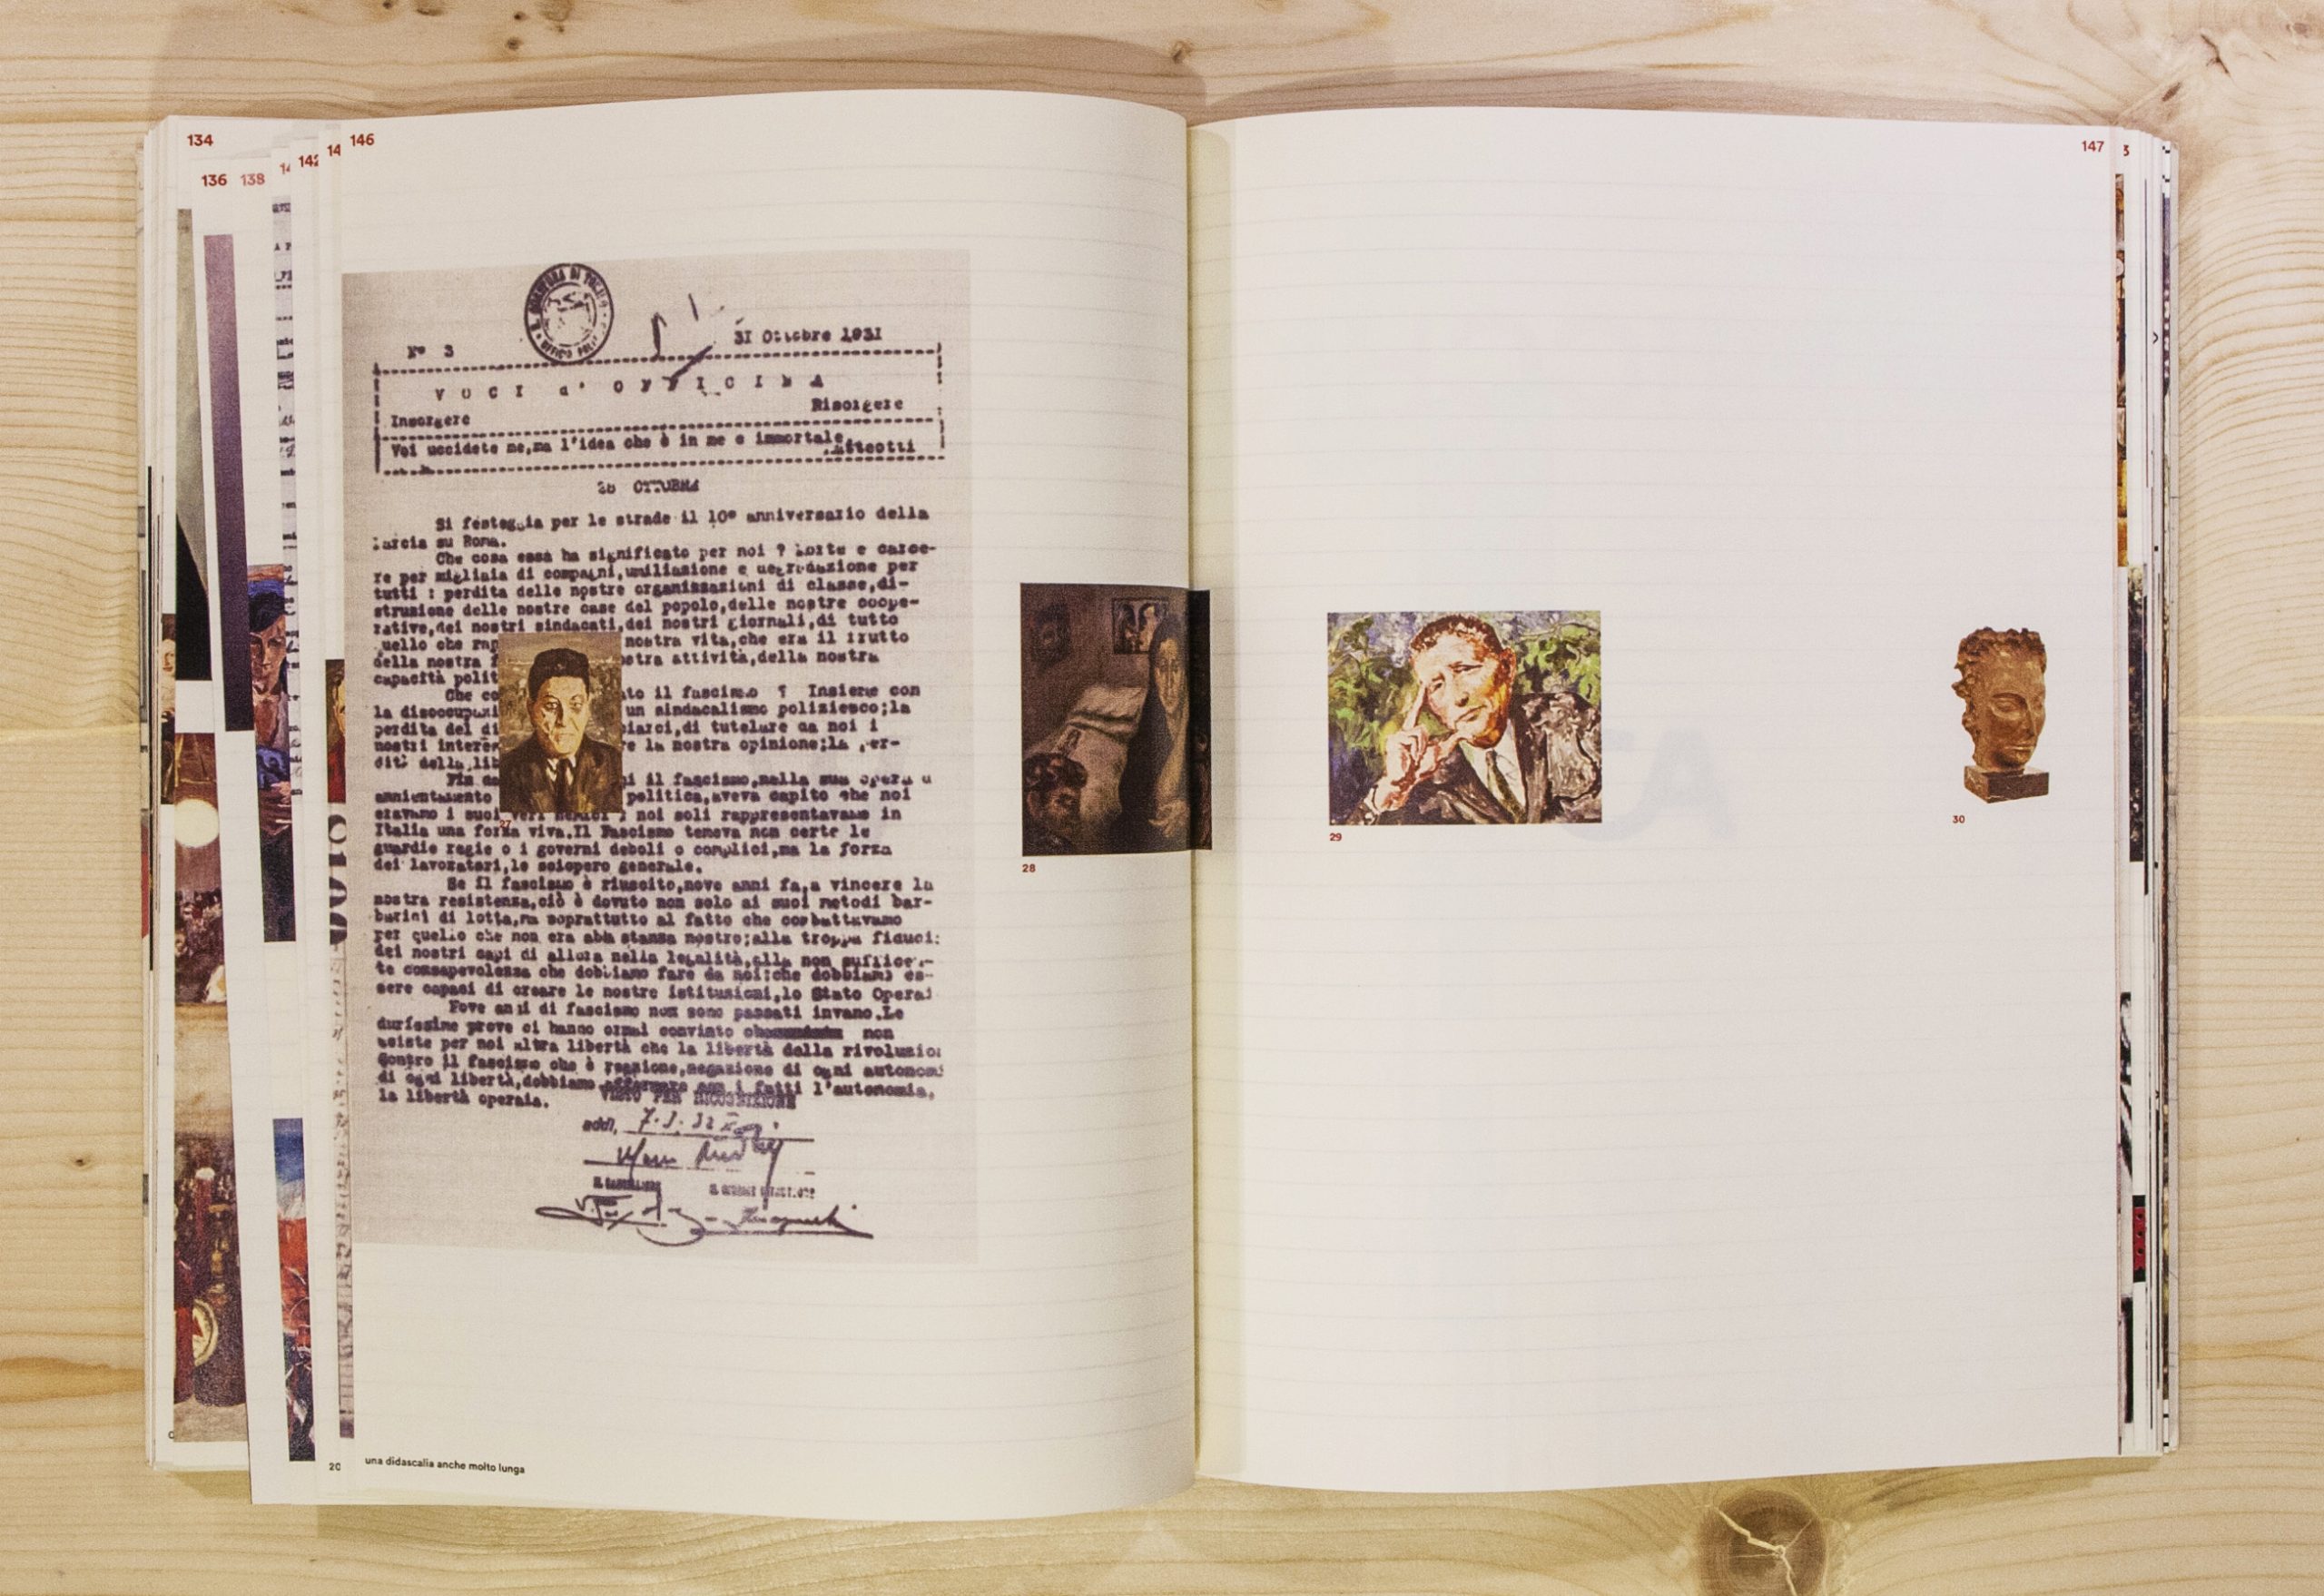 134
136 138
142
146
147
Nº 3
31 Ottobre 1931
VOCI d' OFFICINA
Insorgere
Risorgere
Voi uccidete me,ma l'idea che è in me e immortale.
28 OTTOBRE
Si festeggia per le strade il 10º anniversario della
su Roma.
Che cosa essa ha significato per noi ? Morte e carce-
re per migliaia di compagni,umiliazione e degradazione per
tutti : perdita delle nostre organizzazioni di classe,di-
struzione delle nostre case del popolo,delle nostre coope-
rative,dei nostri sindacati,dei nostri giornali,di tutto
quello che nostra vita,che era il frutto
della nostra attività,della nostra
capacità
Che il fascismo ? Insieme con
la un sindacalismo poliziesco;la
perdita del di tutelare da noi i
nostri la nostra opinione;la per-
della
il fascismo,nella sua opera
annientamento politica,aveva capito che noi
eravamo i suoi veri nemici : noi soli rappresentavamo in
Italia una forza viva.Il Fascismo temeva non certo le
guardie regie o i governi deboli o complici,ma la forza
dei lavoratori,lo sciopero generale.
Se il fascismo è riuscito,nove anni fa,a vincere la
nostra resistenza,ciò è dovuto non solo ai suoi metodi bar-
barici di lotta,ma soprattutto al fatto che combattevamo
per quello che non era abba stanza nostro;alla troppa
dei nostri capi di allora nella legalità,alla non
te consapevolezza che dobbiamo fare da noi:che dobbiamo es-
sere capaci di creare le nostre istituzioni,lo Stato
anni di fascismo non sono passati invano.Le
durissime prove ci hanno ormai convinto non
esiste per noi altra libertà che la libertà della
Contro il fascismo che è reazione,negazione di ogni
di ogni libertà,dobbiamo affermare con i fatti l'autonomia,
la libertà operaia.
VISTO PER RICOGNIZIONE
addì,
27
28
29
30
20
una didascalia anche molto lunga